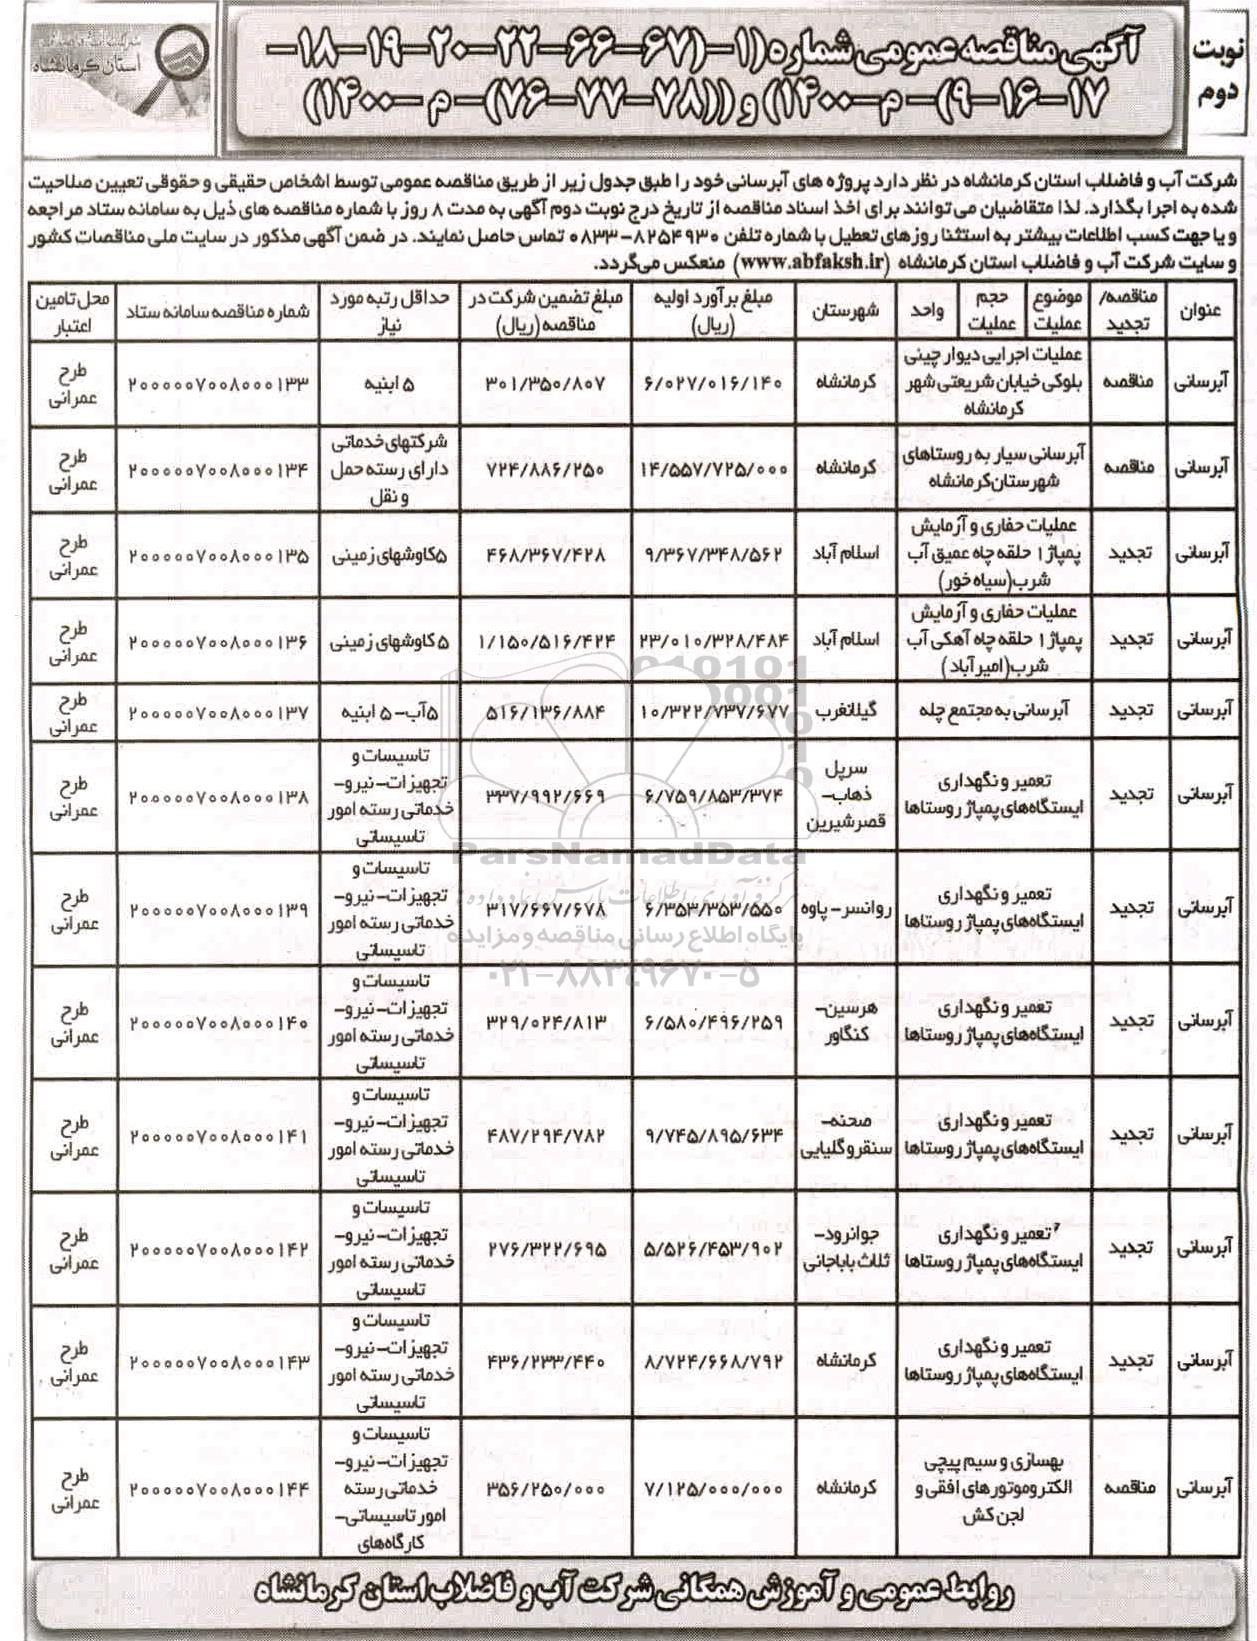 نوبت
دوم
آگهی مناقصه عمومی شماره (۱-(۶۷-۶۶-۲۲-۲۰-۱۹-۱۸-
۱۷-۱۶-۹)-م-۱۴۰۰) و ((۷۸-۷۷-۷۶)-م-۱۴۰۰)
شرکت آب و فاضلاب
استان کرمانشاه
شرکت آب و فاضلاب استان کرمانشاه در نظر دارد پروژه های آبرسانی خود را طبق جدول زیر از طریق مناقصه عمومی توسط اشخاص حقیقی و حقوقی تعیین صلاحیت
شده به اجرا بگذارد. لذا متقاضیان می توانند برای اخذ اسناد مناقصه از تاریخ درج نوبت دوم آگهی به مدت ۸ روز با شماره مناقصه های ذیل به سامانه ستاد مراجعه
و یا جهت کسب اطلاعات بیشتر به استثنا روزهای تعطیل با شماره تلفن ۸۲۵۴۹۳۰-۰۸۳۳ تماس حاصل نمایند. در ضمن آگهی مذکور در سایت ملی مناقصات کشور
و سایت شرکت آب و فاضلاب استان کرمانشاه (www.abfaksh.ir) منعکس می‌گردد.
عنوان | مناقصه/ تجدید | موضوع عملیات | حجم عملیات | واحد | شهرستان | مبلغ برآورد اولیه (ریال) | مبلغ تضمین شرکت در مناقصه (ریال) | حداقل رتبه مورد نیاز | شماره مناقصه سامانه ستاد | محل تامین اعتبار
آبرسانی | مناقصه | عملیات اجرایی دیوار چینی بلوکی خیابان شریعتی شهر کرمانشاه | کرمانشاه | ۶/۰۲۷/۰۱۶/۱۴۰ | ۳۰۱/۳۵۰/۸۰۷ | ۵ ابنیه | ۲۰۰۰۰۰۷۰۰۸۰۰۰۱۳۳ | طرح عمرانی
آبرسانی | مناقصه | آبرسانی سیار به روستاهای شهرستان کرمانشاه | کرمانشاه | ۱۴/۵۵۷/۷۲۵/۰۰۰ | ۷۲۴/۸۸۶/۲۵۰ | شرکتهای خدماتی دارای رسته حمل و نقل | ۲۰۰۰۰۰۷۰۰۸۰۰۰۱۳۴ | طرح عمرانی
آبرسانی | تجدید | عملیات حفاری و آزمایش پمپاژ ۱ حلقه چاه عمیق آب شرب (سیاه خور) | اسلام آباد | ۹/۳۶۷/۳۴۸/۵۶۲ | ۴۶۸/۳۶۷/۴۲۸ | ۵ کاوشهای زمینی | ۲۰۰۰۰۰۷۰۰۸۰۰۰۱۳۵ | طرح عمرانی
آبرسانی | تجدید | عملیات حفاری و آزمایش پمپاژ ۱ حلقه چاه آهکی آب شرب (امیرآباد) | اسلام آباد | ۲۳/۰۱۰/۳۲۸/۴۸۴ | ۱/۱۵۰/۵۱۶/۴۲۴ | ۵ کاوشهای زمینی | ۲۰۰۰۰۰۷۰۰۸۰۰۰۱۳۶ | طرح عمرانی
آبرسانی | تجدید | آبرسانی به مجتمع چله | گیلانغرب | ۱۰/۳۲۲/۷۳۷/۶۷۷ | ۵۱۶/۱۳۶/۸۸۴ | ۵ آب-۵ ابنیه | ۲۰۰۰۰۰۷۰۰۸۰۰۰۱۳۷ | طرح عمرانی
آبرسانی | تجدید | تعمیر و نگهداری ایستگاه‌های پمپاژ روستاها | سرپل ذهاب- قصرشیرین | ۶/۷۵۹/۸۵۳/۳۷۴ | ۳۳۷/۹۹۲/۶۶۹ | تاسیسات و تجهیزات-نیرو- خدماتی رسته امور تاسیساتی | ۲۰۰۰۰۰۷۰۰۸۰۰۰۱۳۸ | طرح عمرانی
آبرسانی | تجدید | تعمیر و نگهداری ایستگاه‌های پمپاژ روستاها | روانسر-پاوه | ۶/۳۵۳/۳۵۳/۵۵۰ | ۳۱۷/۶۶۷/۶۷۸ | تاسیسات و تجهیزات-نیرو- خدماتی رسته امور تاسیساتی | ۲۰۰۰۰۰۷۰۰۸۰۰۰۱۳۹ | طرح عمرانی
آبرسانی | تجدید | تعمیر و نگهداری ایستگاه‌های پمپاژ روستاها | هرسین- کنگاور | ۶/۵۸۰/۴۹۶/۲۵۹ | ۳۲۹/۰۲۴/۸۱۳ | تاسیسات و تجهیزات-نیرو- خدماتی رسته امور تاسیساتی | ۲۰۰۰۰۰۷۰۰۸۰۰۰۱۴۰ | طرح عمرانی
آبرسانی | تجدید | تعمیر و نگهداری ایستگاه‌های پمپاژ روستاها | صحنه- سنقر و گلیایی | ۹/۷۴۵/۸۹۵/۶۳۴ | ۴۸۷/۲۹۴/۷۸۲ | تاسیسات و تجهیزات-نیرو- خدماتی رسته امور تاسیساتی | ۲۰۰۰۰۰۷۰۰۸۰۰۰۱۴۱ | طرح عمرانی
آبرسانی | تجدید | تعمیر و نگهداری ایستگاه‌های پمپاژ روستاها | جوانرود- ثلاث باباجانی | ۵/۵۲۶/۴۵۳/۹۰۲ | ۲۷۶/۳۲۲/۶۹۵ | تاسیسات و تجهیزات-نیرو- خدماتی رسته امور تاسیساتی | ۲۰۰۰۰۰۷۰۰۸۰۰۰۱۴۲ | طرح عمرانی
آبرسانی | تجدید | تعمیر و نگهداری ایستگاه‌های پمپاژ روستاها | کرمانشاه | ۸/۷۲۴/۶۶۸/۷۹۲ | ۴۳۶/۲۳۳/۴۴۰ | تاسیسات و تجهیزات-نیرو- خدماتی رسته امور تاسیساتی | ۲۰۰۰۰۰۷۰۰۸۰۰۰۱۴۳ | طرح عمرانی
آبرسانی | مناقصه | بهسازی و سیم پیچی الکتروموتورهای افقی و لجن کش | کرمانشاه | ۷/۱۲۵/۰۰۰/۰۰۰ | ۳۵۶/۲۵۰/۰۰۰ | تاسیسات و تجهیزات-نیرو- خدماتی رسته امور تاسیساتی- کارگاه‌های | ۲۰۰۰۰۰۷۰۰۸۰۰۰۱۴۴ | طرح عمرانی
ParsNamadData
پایگاه اطلاع رسانی مناقصه و مزایده
۰۲۱-۸۸۳۴۹۶۷۰-۵
روابط عمومی و آموزش همگانی شرکت آب و فاضلاب استان کرمانشاه